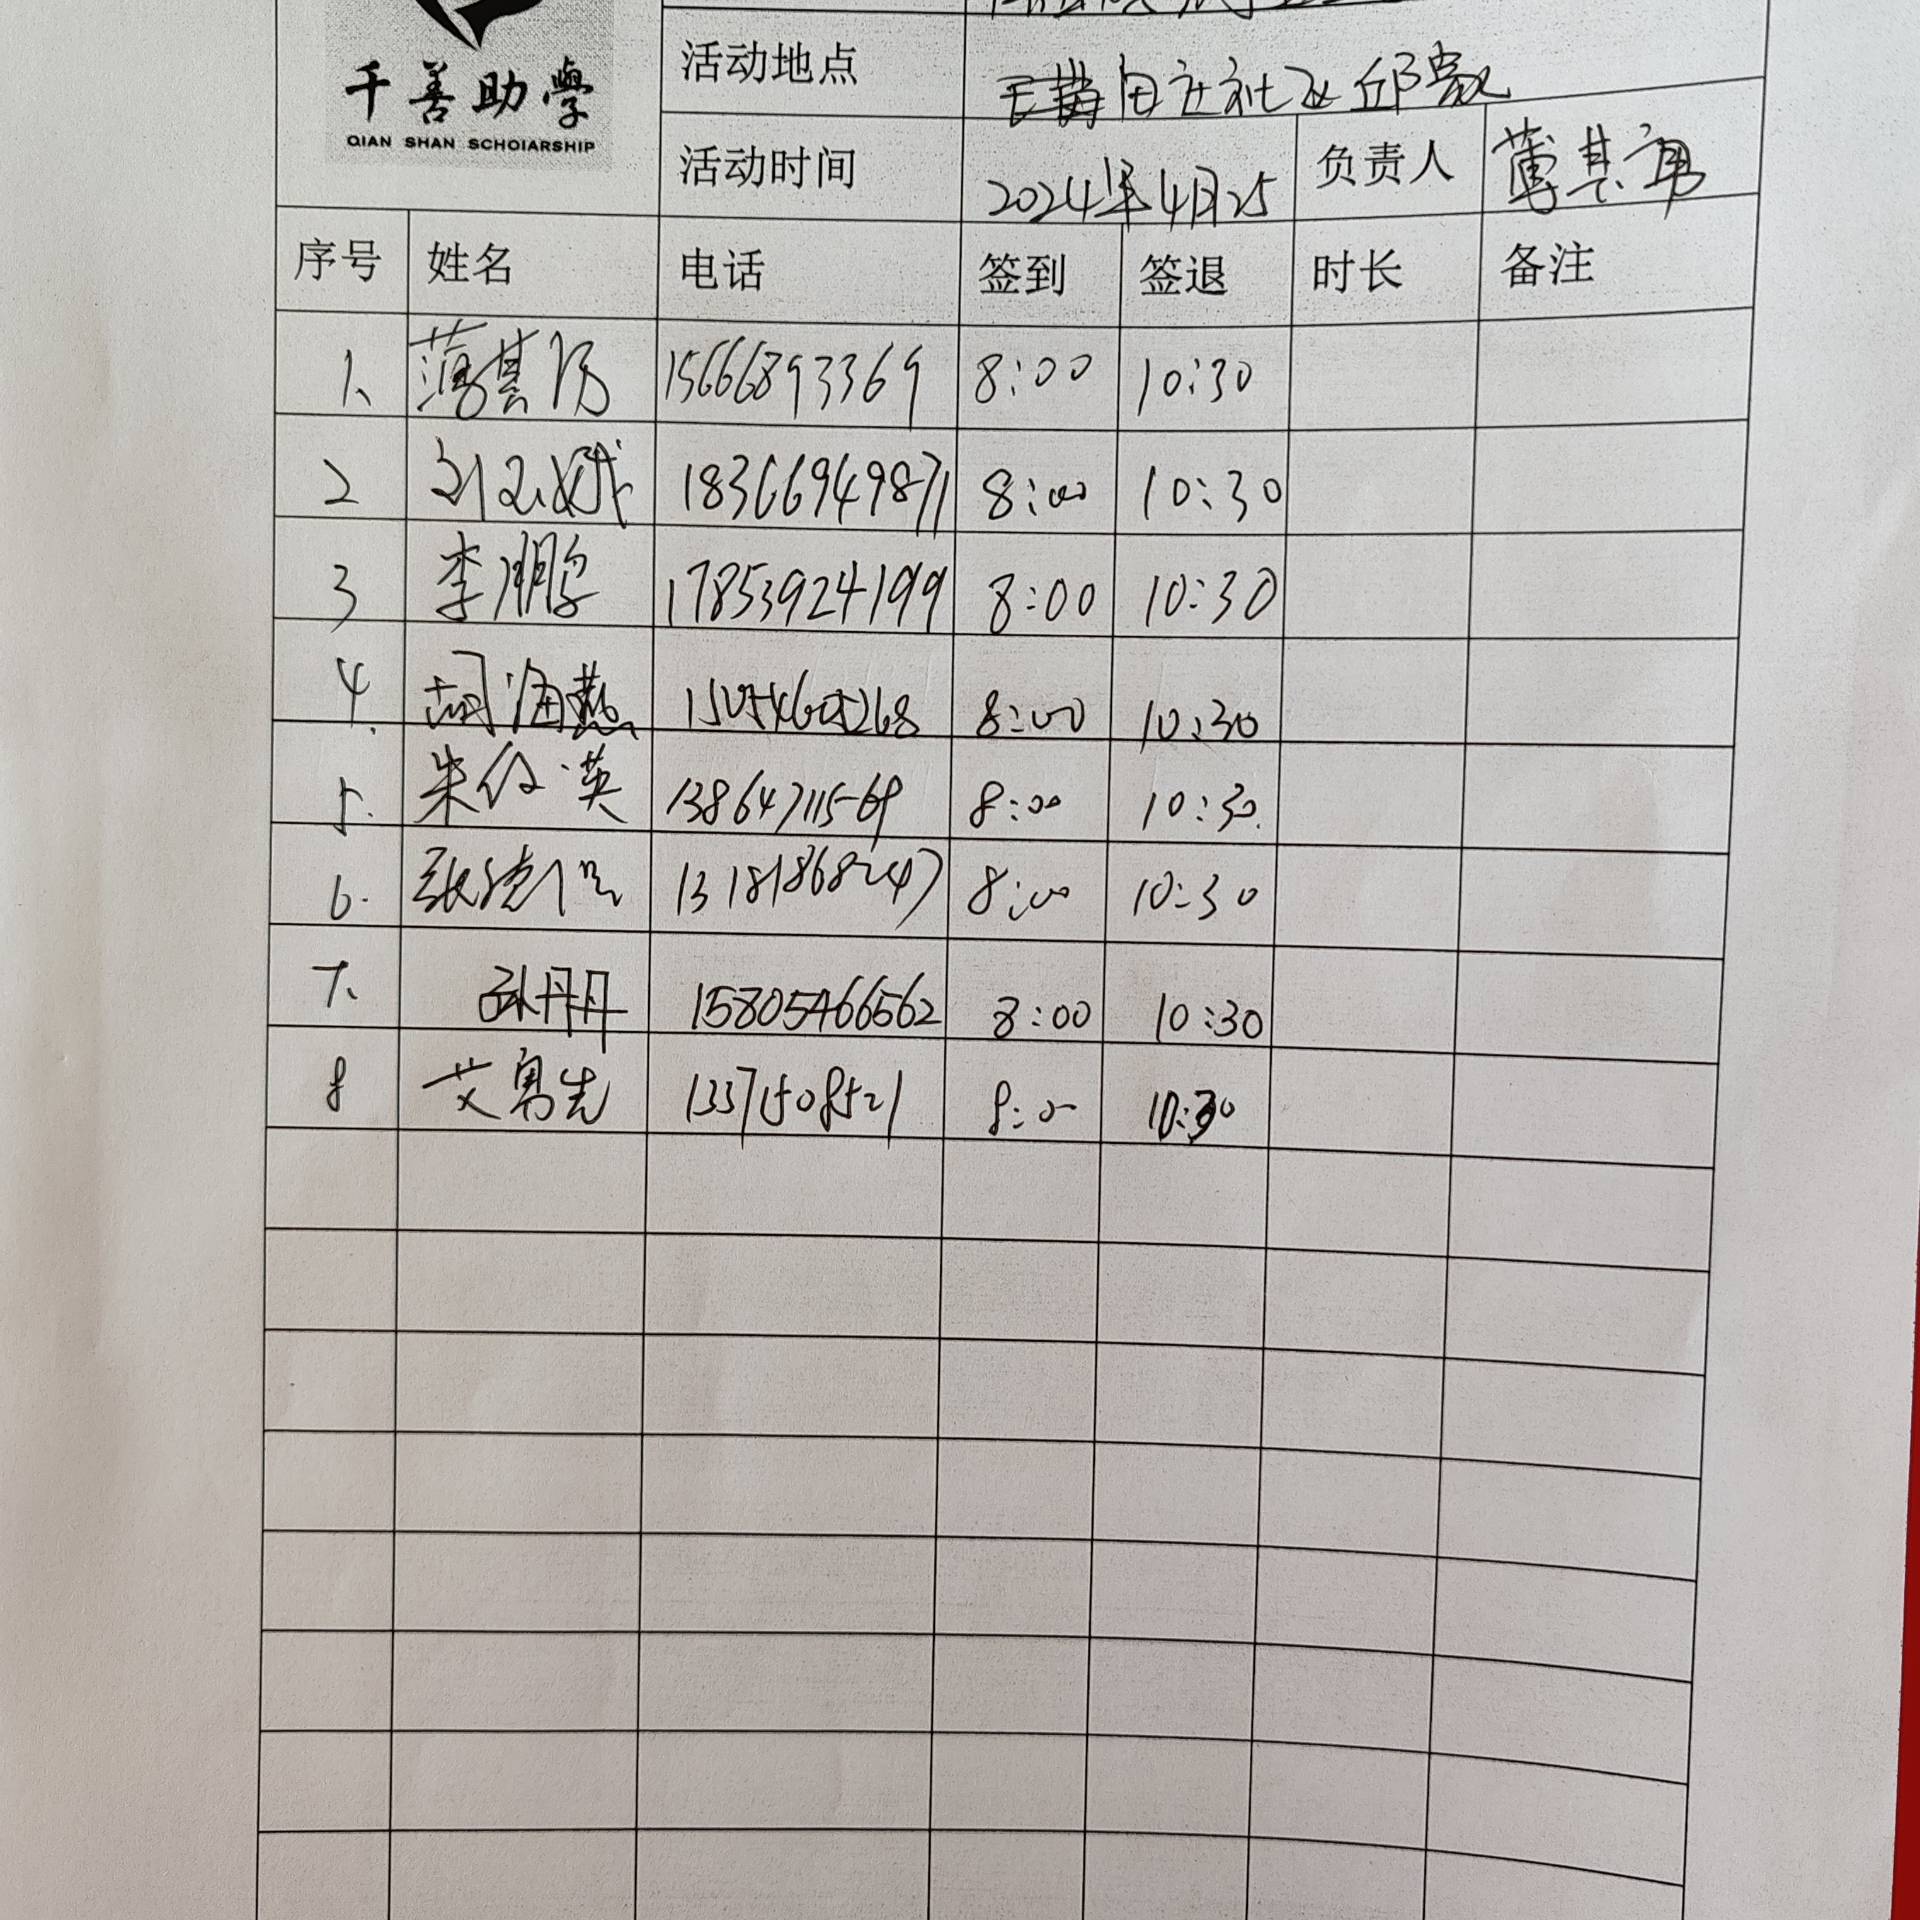 千善助學
QIAN SHAN SCHOIARSHIP
活动地点 田庄社区
活动时间 2024年4月25 负责人 薄其房
序号 姓名 电话 签到 签退 时长 备注
1、 薄其房 15666893369 8:00 10:30
2 18366949871 8:00 10:30
3 李鹏 17853924199 8:00 10:30
4. 胡海燕 15054605268 8:00 10:30
5. 朱 英 13864711569 8:00 10:30.
6. 张德 13181868247 8:00 10:30
7、 孙丹丹 15805466562 8:00 10:30
8 艾勇先 13371508521 8:00 10:30